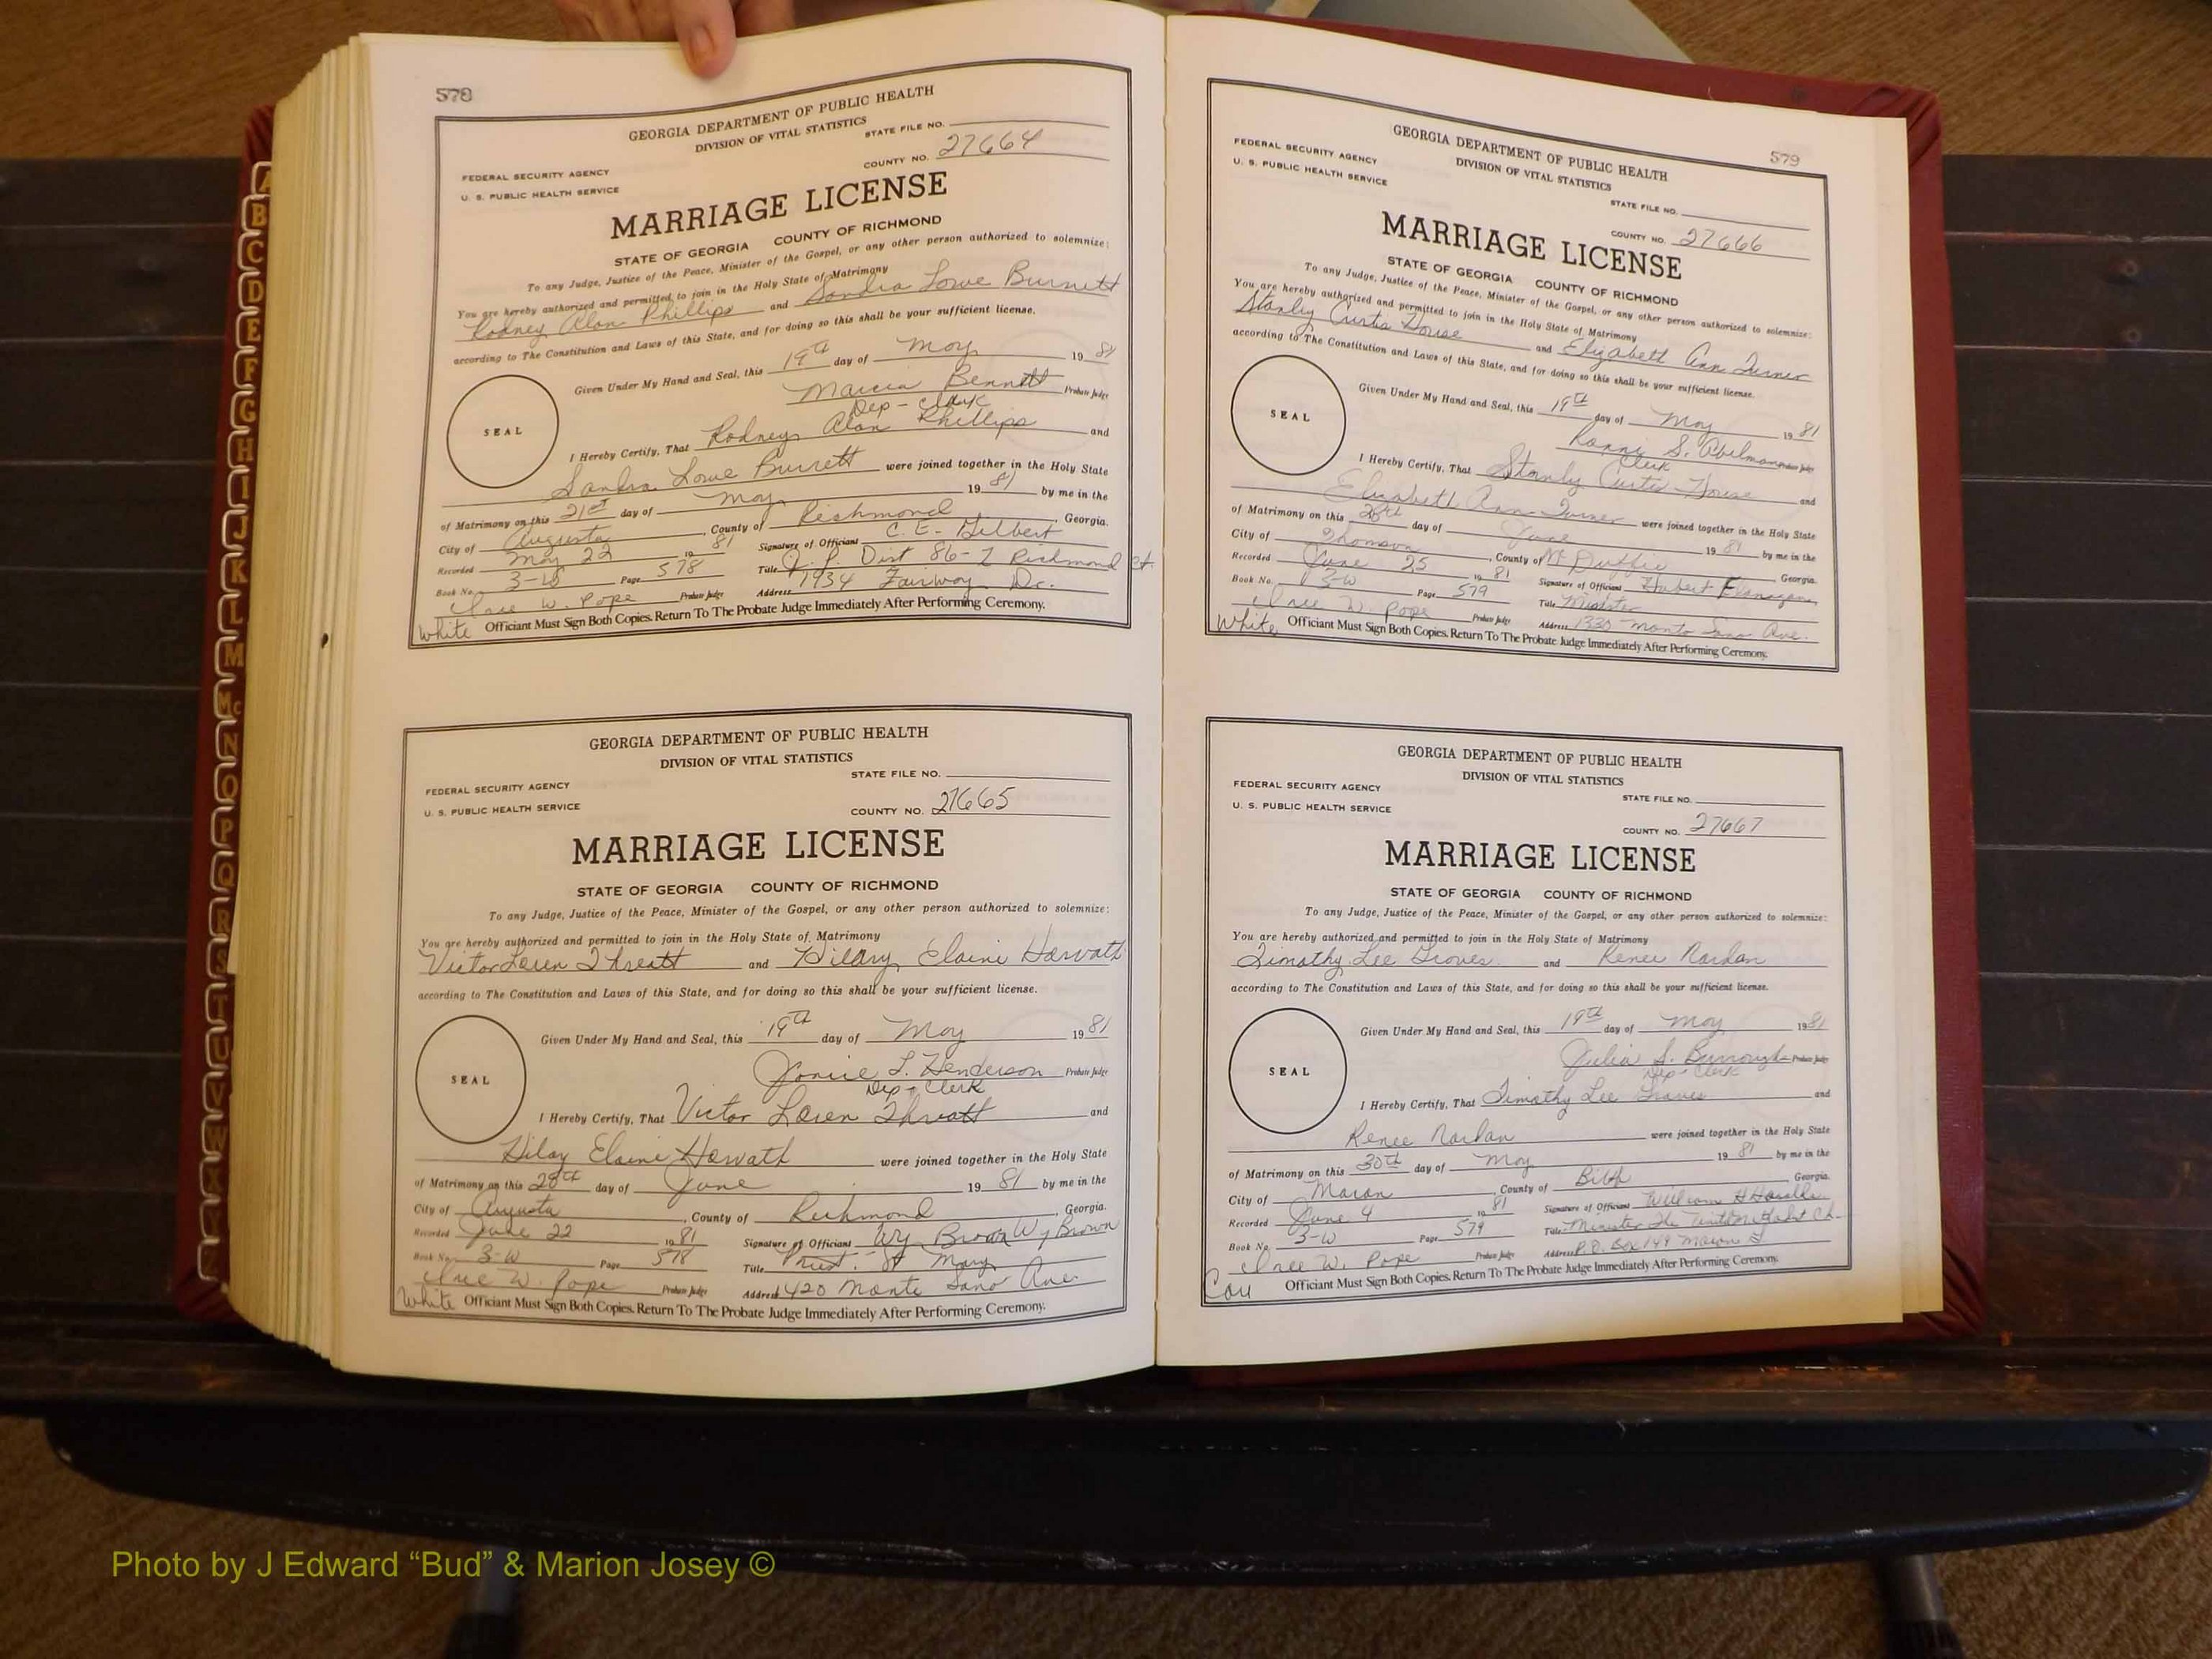 578
GEORGIA DEPARTMENT OF PUBLIC HEALTH
DIVISION OF VITAL STATISTICS
STATE FILE NO.
FEDERAL SECURITY AGENCY
COUNTY NO. 27664
U. S. PUBLIC HEALTH SERVICE
MARRIAGE LICENSE
STATE OF GEORGIA COUNTY OF RICHMOND
To any Judge, Justice of the Peace, Minister of the Gospel, or any other person authorized to solemnize:
You are hereby authorized and permitted to join in the Holy State of Matrimony
Rodney Alan Phillips and Sandra Lowe Burnett
according to The Constitution and Laws of this State, and for doing so this shall be your sufficient license.
Given Under My Hand and Seal, this 19th day of May 19 81
Marcia Bennett Probate Judge
Dep - Clerk
SEAL
I Hereby Certify, That Rodney Alan Phillips and
Sandra Lowe Burnett were joined together in the Holy State
of Matrimony on this 21st day of May 19 81 by me in the
City of Augusta, County of Richmond, Georgia.
Recorded May 22 19 81 Signature of Officiant C. E. Gilbert
Book No. 3-W Page 578 Title J. P. Dist 86-2 Richmond Ct.
W. Pope Probate Judge Address 1934 Fairway Dr.
White Officiant Must Sign Both Copies. Return To The Probate Judge Immediately After Performing Ceremony.
GEORGIA DEPARTMENT OF PUBLIC HEALTH
DIVISION OF VITAL STATISTICS
STATE FILE NO.
FEDERAL SECURITY AGENCY
U. S. PUBLIC HEALTH SERVICE
COUNTY NO. 27665
MARRIAGE LICENSE
STATE OF GEORGIA COUNTY OF RICHMOND
To any Judge, Justice of the Peace, Minister of the Gospel, or any other person authorized to solemnize:
You are hereby authorized and permitted to join in the Holy State of Matrimony
Victor Loren Threatt and Hilary Elaine Horvath
according to The Constitution and Laws of this State, and for doing so this shall be your sufficient license.
Given Under My Hand and Seal, this 19th day of May 19 81
Janice L. Henderson Probate Judge
Dep - Clerk
SEAL
I Hereby Certify, That Victor Loren Threatt and
Hilay Elaine Horvath were joined together in the Holy State
of Matrimony on this 28th day of June 19 81 by me in the
City of Augusta, County of Richmond, Georgia.
Recorded June 22 19 81 Signature of Officiant Wy Brown Wy Brown
Book No. 3-W Page 578 Title Priest - St Mary
W. Pope Probate Judge Address 1420 Monte Sano Ave.
White Officiant Must Sign Both Copies. Return To The Probate Judge Immediately After Performing Ceremony.
579
GEORGIA DEPARTMENT OF PUBLIC HEALTH
DIVISION OF VITAL STATISTICS
FEDERAL SECURITY AGENCY
U. S. PUBLIC HEALTH SERVICE
STATE FILE NO.
COUNTY NO. 27666
MARRIAGE LICENSE
STATE OF GEORGIA COUNTY OF RICHMOND
To any Judge, Justice of the Peace, Minister of the Gospel, or any other person authorized to solemnize:
You are hereby authorized and permitted to join in the Holy State of Matrimony
Stanley Curtis House and Elizabeth Ann Turner
according to The Constitution and Laws of this State, and for doing so this shall be your sufficient license.
Given Under My Hand and Seal, this 19th day of May 19 81
S. Abelman Probate Judge
Clerk
SEAL
I Hereby Certify, That Stanly Curtis House and
Elizabeth Ann Turner were joined together in the Holy State
of Matrimony on this day of June 19 81 by me in the
City of Thomson, County of McDuffie, Georgia.
Recorded June 25 19 81 Signature of Officiant Hubert Flanagan
Book No. 3-W Page 579 Title Minister
W. Pope Probate Judge Address 1330 Monto Sano Ave.
White Officiant Must Sign Both Copies. Return To The Probate Judge Immediately After Performing Ceremony.
GEORGIA DEPARTMENT OF PUBLIC HEALTH
DIVISION OF VITAL STATISTICS
FEDERAL SECURITY AGENCY
STATE FILE NO.
U. S. PUBLIC HEALTH SERVICE
COUNTY NO. 27667
MARRIAGE LICENSE
STATE OF GEORGIA COUNTY OF RICHMOND
To any Judge, Justice of the Peace, Minister of the Gospel, or any other person authorized to solemnize:
You are hereby authorized and permitted to join in the Holy State of Matrimony
Timothy Lee Groves and Renee
according to The Constitution and Laws of this State, and for doing so this shall be your sufficient license.
Given Under My Hand and Seal, this 19th day of May 19 81
Julia S. Burroughs Probate Judge
Dep - Clerk
SEAL
I Hereby Certify, That Timothy Lee Groves and
Renee were joined together in the Holy State
of Matrimony on this 30th day of May 19 81 by me in the
City of Macon, County of Bibb, Georgia.
Recorded June 4 19 81 Signature of Officiant William H
Book No. 3-W Page 579 Title Minister The United Methodist Ch.
W. Pope Probate Judge Address P.O. Box 149 Macon
Cau Officiant Must Sign Both Copies. Return To The Probate Judge Immediately After Performing Ceremony.
A
B
C
D
E
F
G
H
I
J
K
L
M
Mc
N
O
P
Q
R
S
T
U
V
W
X
Photo by J Edward “Bud” & Marion Josey ©